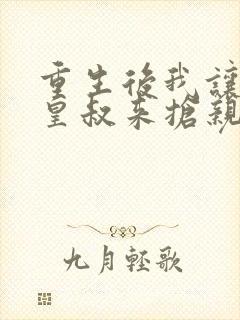 重生後我讓
皇叔来搶親
九月輕歌